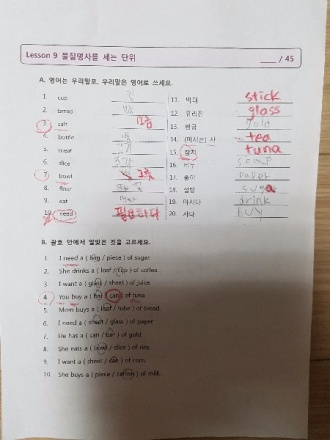 Lesson 9 물질명사를 세는 단위
/ 45
A. 영어는 우리말로, 우리말은 영어로 쓰세요.
1. cup 컵
2. bread 빵
3. salt 소금
4. bottle 병
5. meat
6. slice 조각
7. bowl 그릇
8. flour
9. eat
10. need 필요하다
11. 막대 stick
12. 유리잔 glass
13. 황금 gold
14. (마시는) 차 tea
15. 참치 tuna
16. 비누 soap
17. 종이 paper
18. 설탕 sugar
19. 마시다 drink
20. 사다 buy
B. 괄호 안에서 알맞은 것을 고르세요.
1. I need a ( bag / piece ) of sugar.
2. She drinks a ( loaf / cup ) of coffee.
3. I want a ( glass / sheet ) of juice.
4. You buy a ( / can ) of tuna.
5. Mom buys a ( loaf / tube ) of bread.
6. I need a ( sheet / glass ) of paper.
7. He has a ( can / bar ) of gold.
8. She eats a ( bowl / slice ) of rice.
9. I want a ( sheet / ear ) of corn.
10. She buys a ( piece / carton ) of milk.